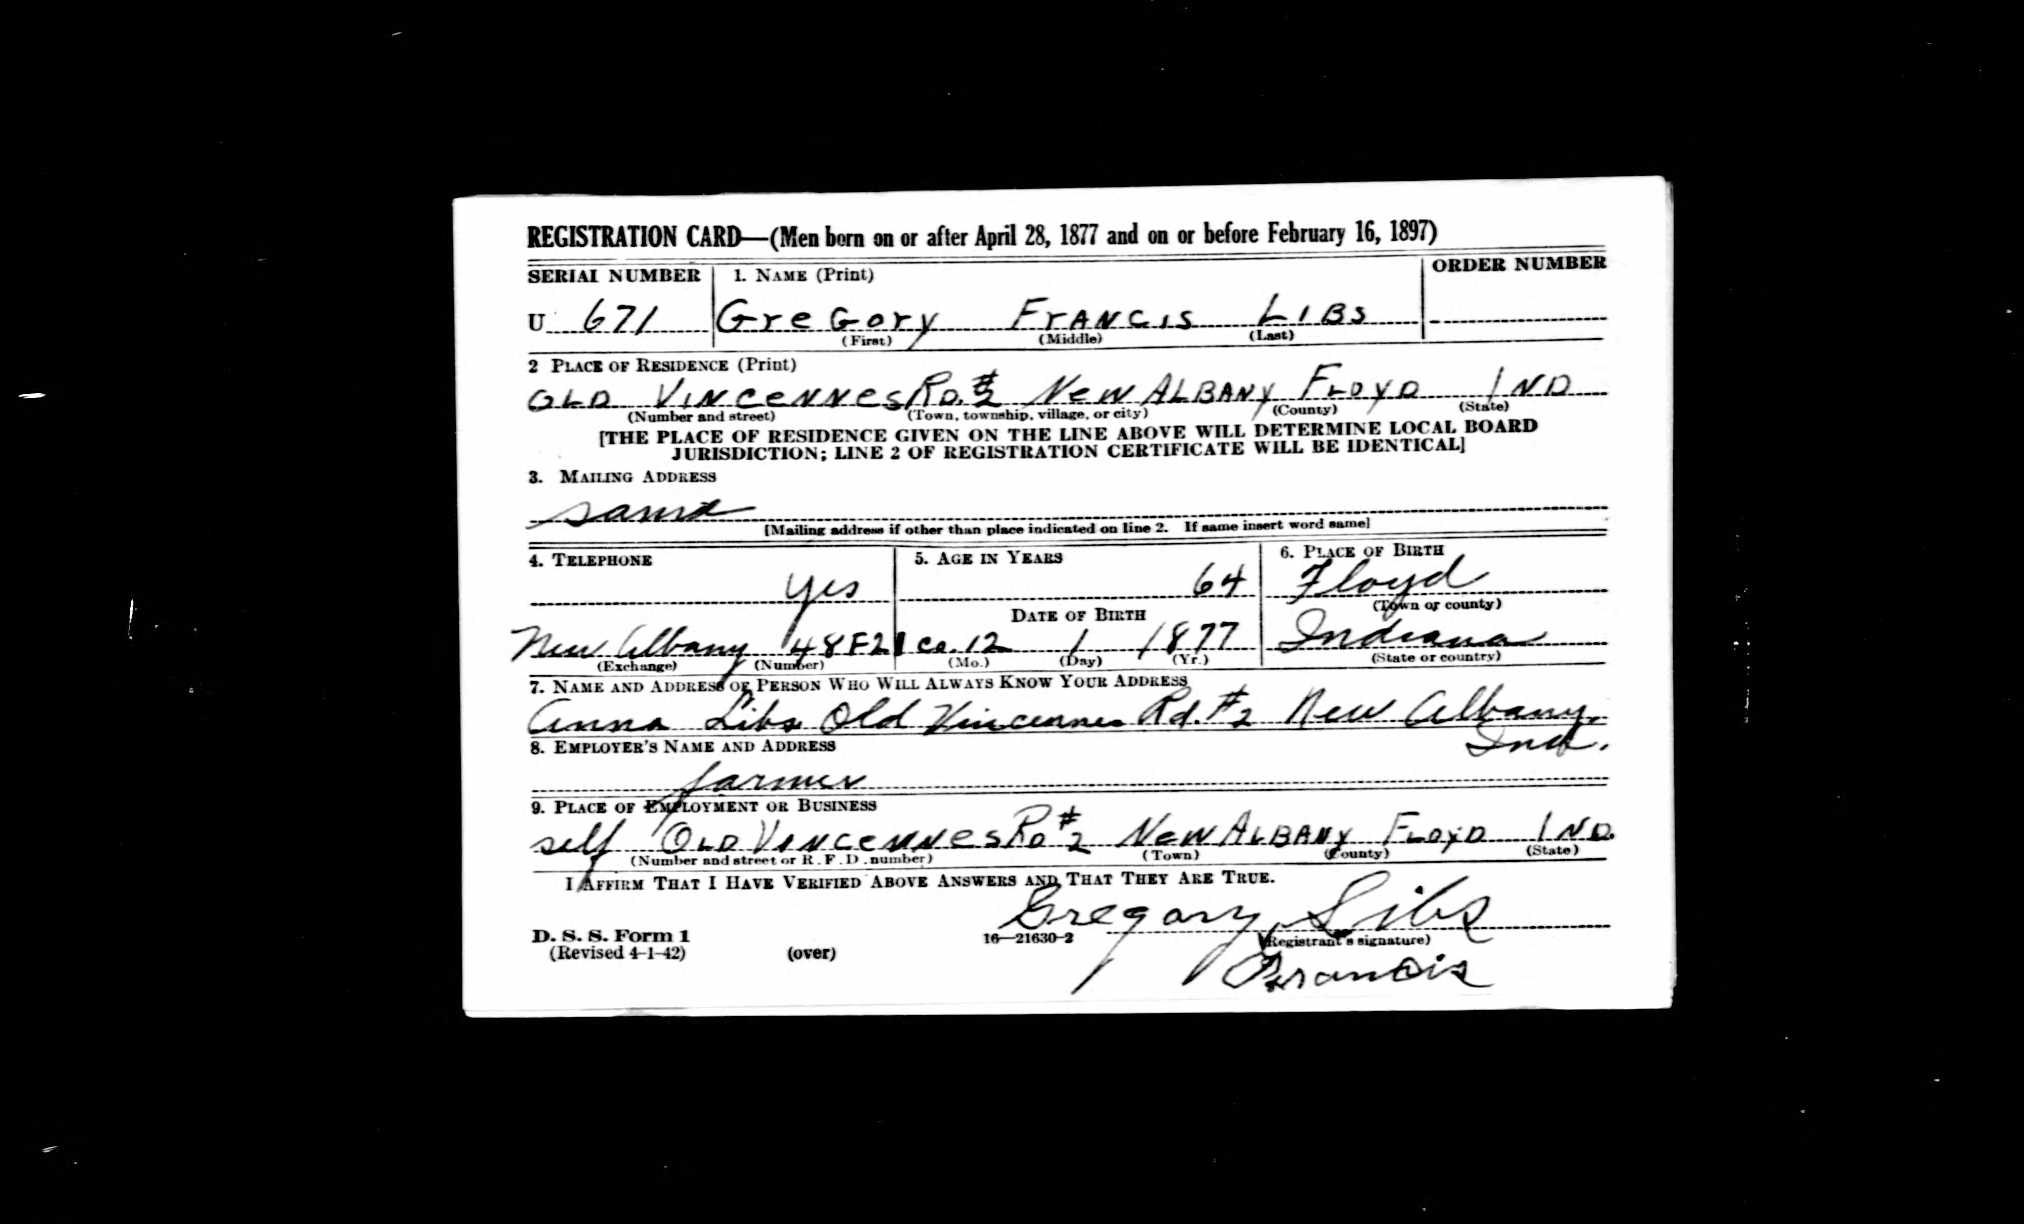 REGISTRATION CARD—(Men born on or after April 28, 1877 and on or before February 16, 1897)
SERIAL NUMBER 1. NAME (Print) ORDER NUMBER
U 671 GreGory FrANCIS LIBS
(First) (Middle) (Last)
2 PLACE OF RESIDENCE (Print)
OLD VINCeNNes RD. #2 NeW ALBANY FLOYD IND
(Number and street) (Town, township, village, or city) (County) (State)
[THE PLACE OF RESIDENCE GIVEN ON THE LINE ABOVE WILL DETERMINE LOCAL BOARD
JURISDICTION; LINE 2 OF REGISTRATION CERTIFICATE WILL BE IDENTICAL]
3. MAILING ADDRESS
same
[Mailing address if other than place indicated on line 2. If same insert word same]
4. TELEPHONE 5. AGE IN YEARS 6. PLACE OF BIRTH
yes 64 Floyd
DATE OF BIRTH (Town or county)
New Albany 48F21 co. 12 1 1877 Indiana
(Exchange) (Number) (Mo.) (Day) (Yr.) (State or country)
7. NAME AND ADDRESS OF PERSON WHO WILL ALWAYS KNOW YOUR ADDRESS
Anna Libs Old Vincennes Rd. #2 New Albany,
Ind.
8. EMPLOYER'S NAME AND ADDRESS
farmer
9. PLACE OF EMPLOYMENT OR BUSINESS
self OLD VINCeNNes RD #2 NeW ALBANY FLOYD IND.
(Number and street or R. F. D. number) (Town) (County) (State)
I AFFIRM THAT I HAVE VERIFIED ABOVE ANSWERS AND THAT THEY ARE TRUE.
Gregory Libs
D. S. S. Form 1 16—21630-2 (Registrant's signature)
(Revised 4-1-42) (over)
Francis